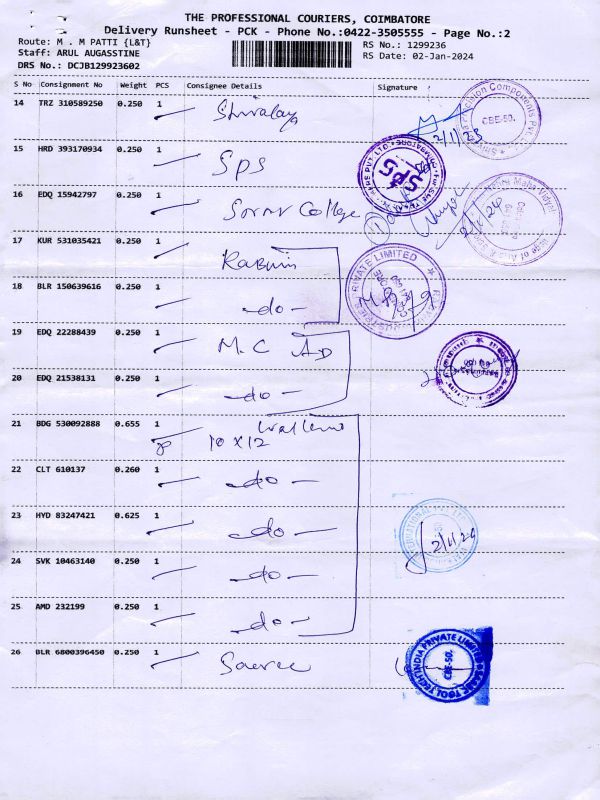 THE PROFESSIONAL COURIERS, COIMBATORE
Delivery Runsheet - PCK - Phone No.:0422-3505555 - Page No.:2
Route: M . M PATTI {L&T}
RS No.: 1299236
Staff: ARUL AUGASSTINE
RS Date: 02-Jan-2024
DRS No.: DCJB129923602
S No Consignment No Weight PCS Consignee Details Signature
14 TRZ 310589250 0.250 1
2/1/23
CBE-50.
15 HRD 393170934 0.250 1 SPS
SPS
16 EDQ 15942797 0.250 1 College
17 KUR 531035421 0.250 1
PRIVATE LIMITED
18 BLR 150639616 0.250 1 -do-
19 EDQ 22288439 0.250 1 M.C AD
20 EDQ 21538131 0.250 1 -do-
21 BDG 530092888 0.655 1
10 X 12
22 CLT 610137 0.260 1 -do-
23 HYD 83247421 0.625 1 -do-
2/1/24
24 SVK 10463140 0.250 1 -do-
25 AMD 232199 0.250 1 -do-
26 BLR 6800396450 0.250 1
INDIA PRIVATE LIMITED
CBE-50.